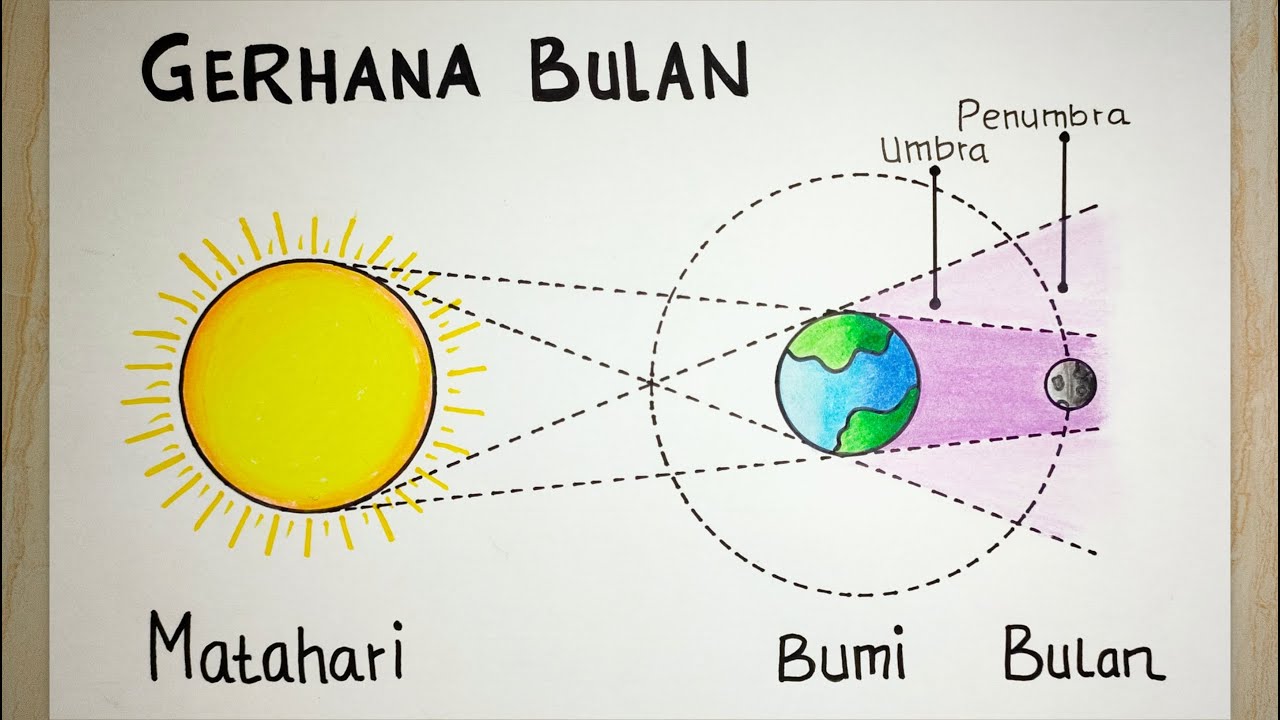 GERHANA BULAN
Penumbra
Umbra
Matahari
Bumi
Bulan